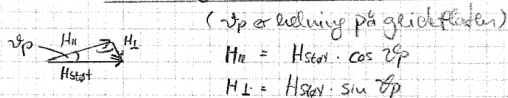 (ϑp er helning på glideflaten)
ϑp H∥ H⊥
Hstøt
H∥ = Hstøt · cos ϑp
H⊥ = Hstøt · sin ϑp